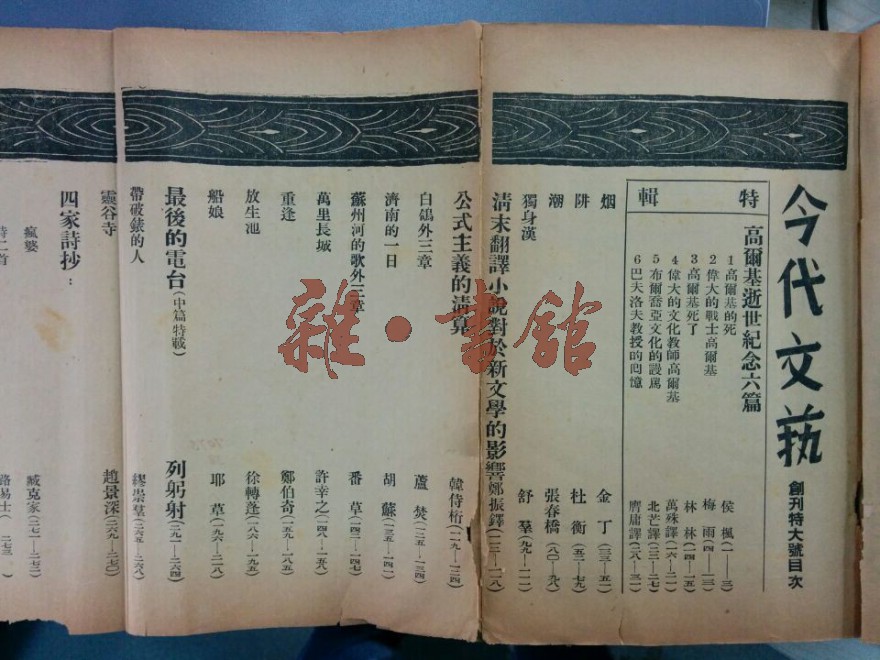 今代文藝
創刊特大號目次
特輯
高爾基逝世紀念六篇
1 高爾基的死 侯楓(一—三)
2 偉大的戰士高爾基 梅雨(四—一三)
3 高爾基死了 林林(一四—一五)
4 偉大的文化教師高爾基 萬殊譯(一六—二一)
5 布爾喬亞文化的設罵 北芒譯(二三—二七)
6 巴夫洛夫教授的回憶 膺庸譯(二八—三一)
烟 金丁(三三—五一)
阱 杜衡(五二—七九)
潮 張春橋(八〇—九八)
獨身漢 舒羣(九九—一一一)
清末翻譯小說對於新文學的影響 鄭振鐸(一一三—一一八)
公式主義的清算 韓侍桁(一一九—一二四)
白鷁外三章 蘆焚(一二五—一三四)
濟南的一日 胡蘇(一三五—一四一)
蘇州河的歌外三章 番草(一四二—一四七)
萬里長城 許幸之(一四八—一五八)
重逢 鄭伯奇(一五九—一八五)
放生池 徐轉蓬(一八六—一九五)
船娘 耶草(一九六—二一八)
最後的電台(中篇特載) 列躬射(二一九—二六四)
帶破錶的人 繆崇羣(二六五—二六八)
靈谷寺 趙景深(二六九—二七〇)
四家詩抄：
瘋婆 臧克家(二七一—二七二)
詩二首 路易士(二七三)
雜·書館